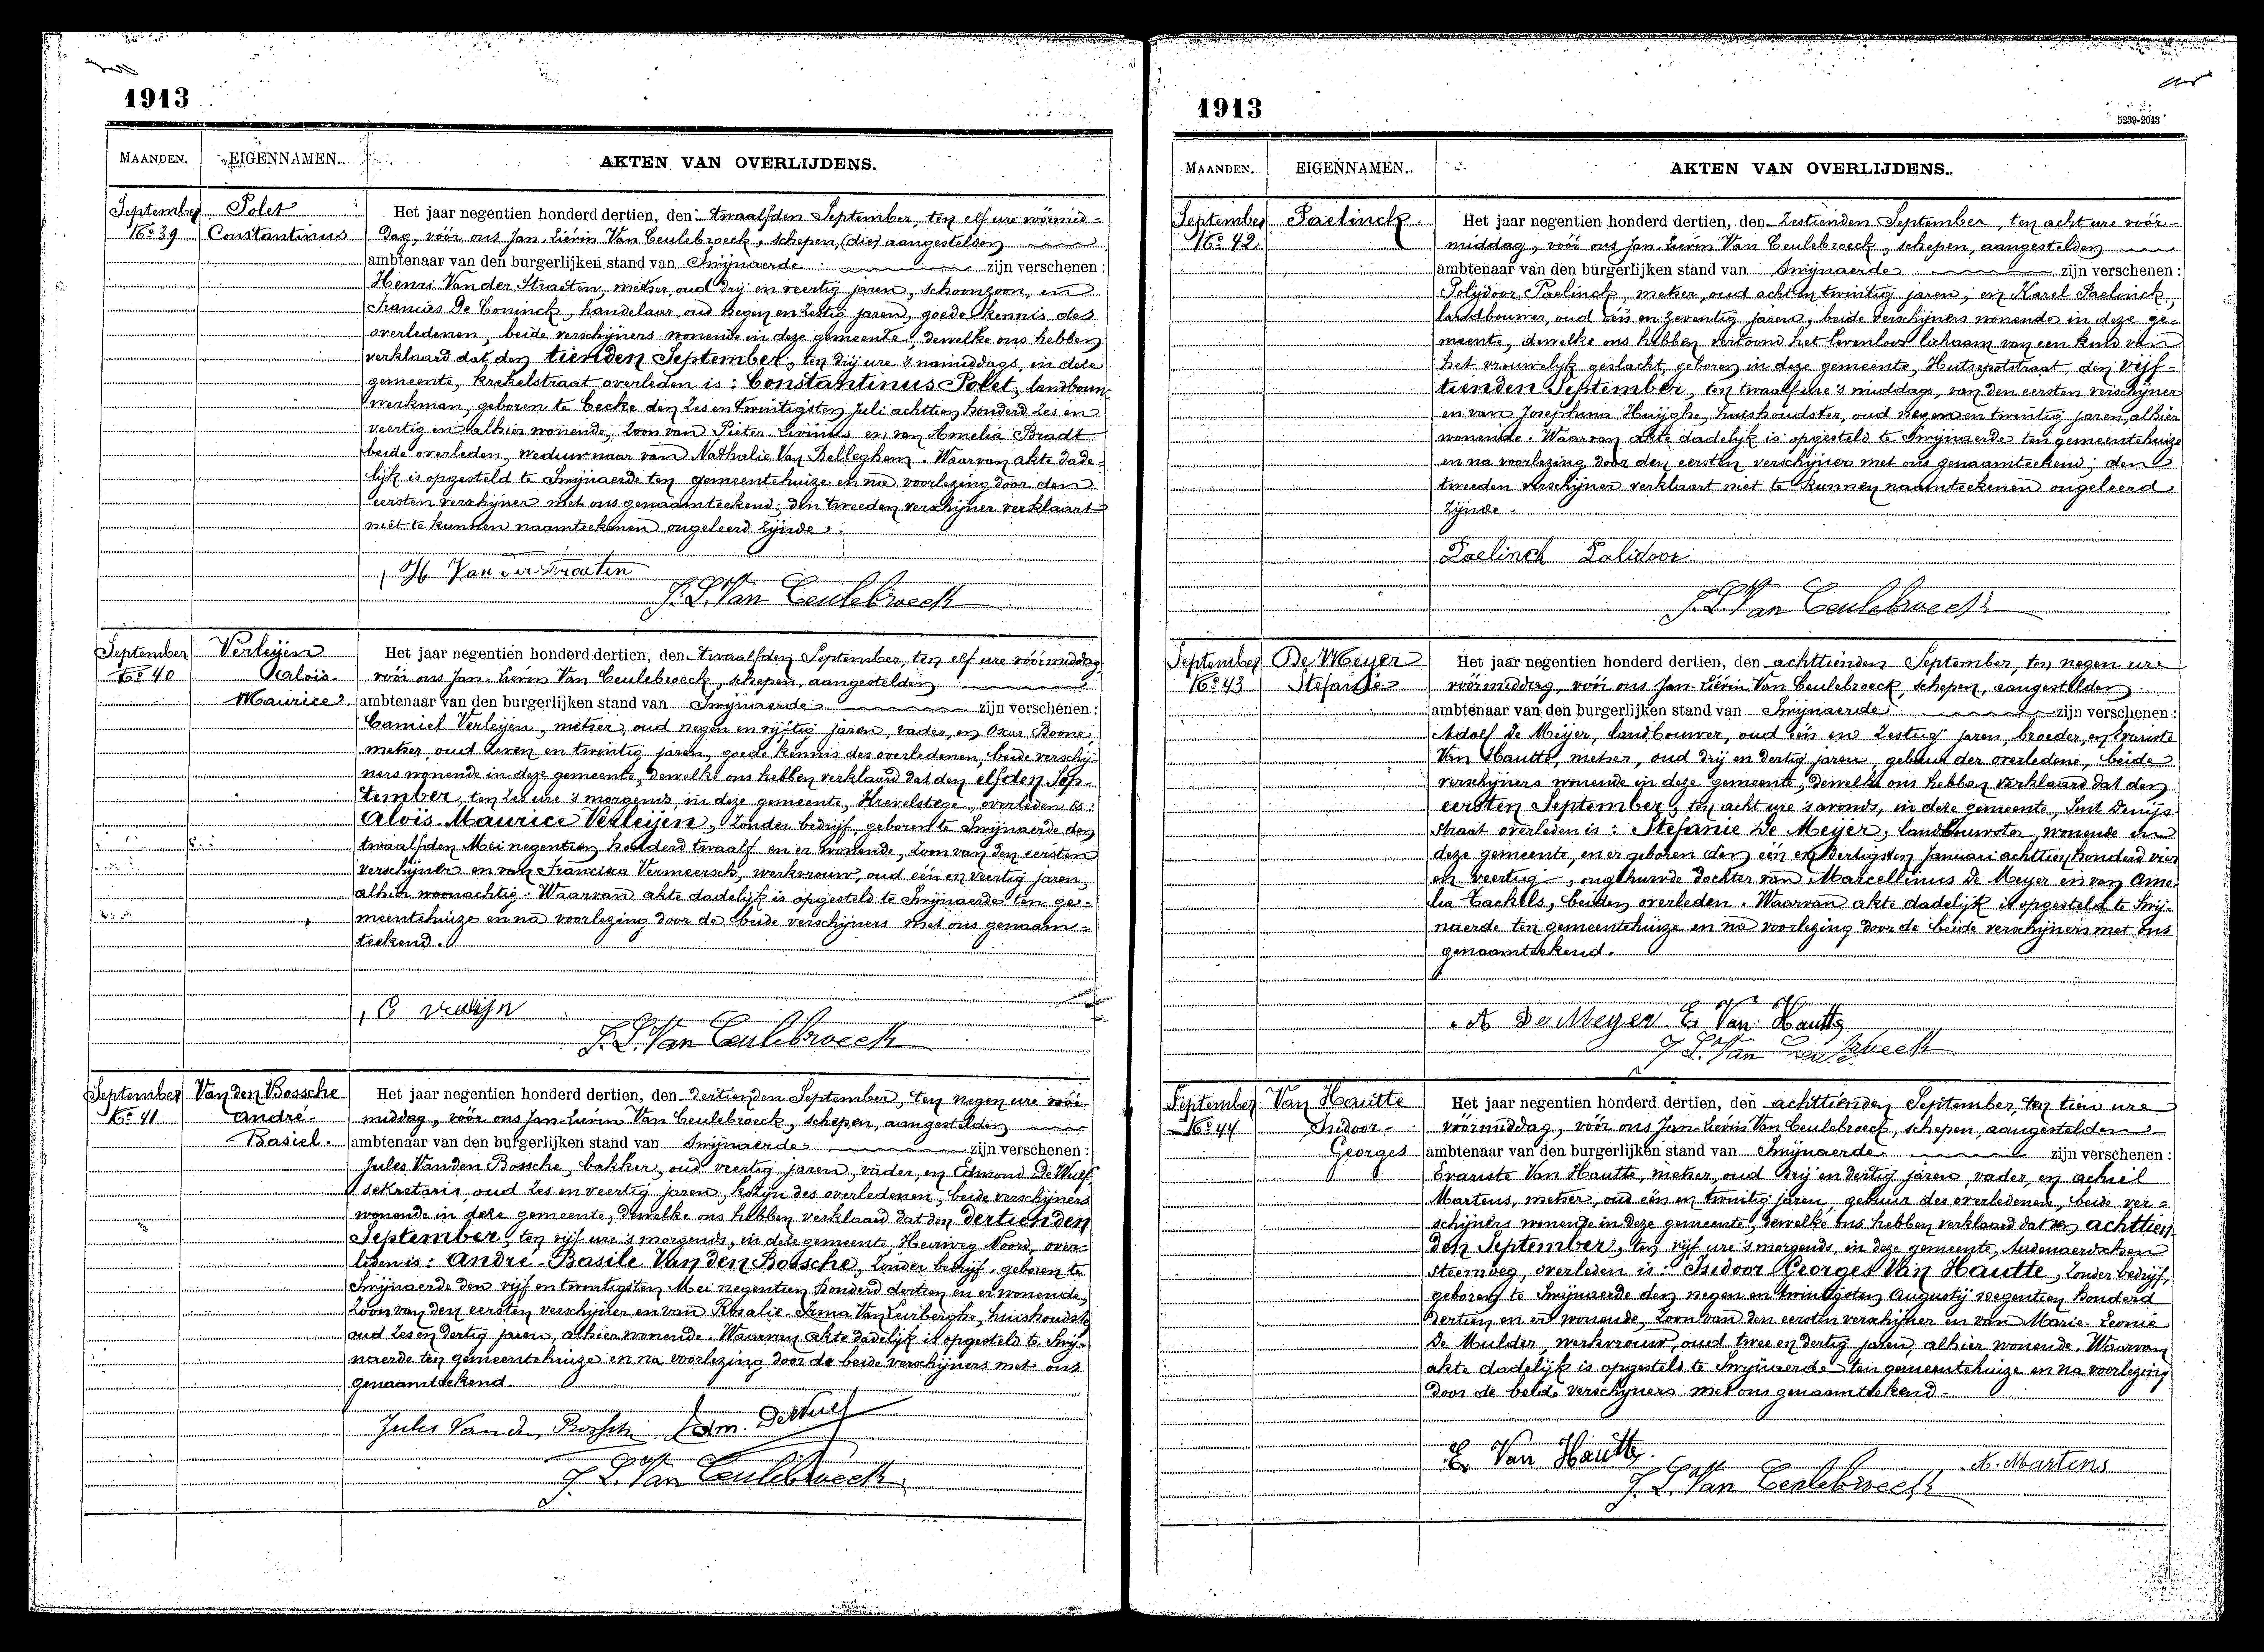 1913
MAANDEN. EIGENNAMEN. AKTEN VAN OVERLIJDENS.
September Polet Het jaar negentien honderd dertien, den twaalfden September, ten elf ure vóórmid-
No 39 Constantinus dag, vóór ons Jan-Liévin Van Ceulebroeck, schepen, (die) aangestelden
ambtenaar van den burgerlijken stand van Swijnaerde zijn verschenen :
Henri Vander Straeten, metser, oud drij en veertig jaren, schoonzoon, en
Francies De Coninck, handelaar, oud negen en zestig jaren, goede kennis des
overledenen, beide verschijners wonende in deze gemeente, dewelke ons hebben
verklaard dat den tienden September, ten drij ure 's namiddags, in deze
gemeente, Krekelstraat overleden is : Constantinus Polet, landbouw-
werkman, geboren te Eecke den zes en twintigsten Juli achttien honderd zes en
veertig en alhier wonende, zoon van Pieter Livinus en van Amelia Bradt
beide overleden, weduwnaar van Nathalie Van Belleghem. Waarvan akte dade-
lijk is opgesteld te Swijnaerde ten gemeentehuize en na voorlezing door den
eersten verschijner met ons genaamteekend; den tweeden verschijner verklaart
niet te kunnen naamteekenen ongeleerd zijnde.
H Van der Straeten
J. L. Van Ceulebroeck
September Verleijen Het jaar negentien honderd dertien, den twaalfden September, ten elf ure vóórmiddag
No 40 Aloïs- vóór ons Jan-Liévin Van Ceulebroeck, schepen, aangestelden
Maurice ambtenaar van den burgerlijken stand van Swijnaerde zijn verschenen :
Camiel Verleijen, metser, oud negen en vijftig jaren, vader, en Oscar Boone,
metser, oud zeven en twintig jaren, goede kennis des overledenen, beide verschij-
ners wonende in deze gemeente, dewelke ons hebben verklaard dat den elfden Sep-
tember, ten zes ure 's morgends, in deze gemeente, Krevelstege, overleden is :
Aloïs-Maurice Verleijen, zonder bedrijf, geboren te Swijnaerde den
twaalfden Mei negentien honderd twaalf en er wonende, zoon van den eersten
verschijner en van Francisca Vermeersch, werkvrouw, oud één en veertig jaren,
alhier woonachtig. Waarvan akte dadelijk is opgesteld te Swijnaerde ten ge-
meentehuize en na voorlezing door de beide verschijners met ons genaam-
teekend.
C verleijn
J. L. Van Ceulebroeck
September Van den Bossche Het jaar negentien honderd dertien, den dertienden September, ten negen ure vóór-
No 41 André- middag, vóór ons Jan-Liévin Van Ceulebroeck, schepen, aangestelden
Basiel. ambtenaar van den burgerlijken stand van Swijnaerde zijn verschenen :
Jules Vanden Bossche, bakker, oud veertig jaren, vader, en Edmond De Wulf,
sekretaris, oud zes en veertig jaren, kozijn des overledenen, beide verschijners
wonende in deze gemeente, dewelke ons hebben verklaard dat den dertienden
September, ten vijf ure 's morgends, in deze gemeente, Heirweg Noord, over-
leden is : André-Basile Van den Bossche, zonder bedrijf, geboren te
Swijnaerde den vijf en twintigsten Mei negentien honderd dertien en er wonende,
zoon van den eersten verschijner en van Rosalie-Irma Van Leirberghe, huishoudster
oud zes en dertig jaren, alhier wonende. Waarvan akte dadelijk is opgesteld te Swij-
naerde ten gemeentehuize en na voorlezing door de beide verschijners met ons
genaamteekend.
Jules Vanden Bossche Edm. DeWulf
J. L. Van Ceulebroeck
1913
5239-2043
MAANDEN. EIGENNAMEN. AKTEN VAN OVERLIJDENS.
September Paelinck Het jaar negentien honderd dertien, den zestienden September, ten acht ure vóór-
No 42 middag, vóór ons Jan-Liévin Van Ceulebroeck, schepen, aangestelden
ambtenaar van den burgerlijken stand van Swijnaerde zijn verschenen :
Polijdoor Paelinck, metser, oud acht en twintig jaren, en Karel Paelinck,
landbouwer, oud één en zeventig jaren, beide verschijners wonende in deze ge-
meente, dewelke ons hebben vertoond het levenloos lichaam van een kind van
het vrouwelijk geslacht, geboren in deze gemeente, Hutsepotstraat, den vijf-
tienden September, ten twaalf ure 's middags, van den eersten verschijner
en van Josephina Huijghe, huishoudster, oud negen en twintig jaren, alhier
wonende. Waarvan akte dadelijk is opgesteld te Swijnaerde ten gemeentehuize
en na voorlezing door den eersten verschijner met ons genaamteekend; den
tweeden verschijner verklaart niet te kunnen naamteekenen ongeleerd
zijnde.
Paelinck Polidoor
J. L. Van Ceulebroeck
September De Meijer Het jaar negentien honderd dertien, den achttienden September, ten negen ure
No 43 Stefanie vóórmiddag, vóór ons Jan-Liévin Van Ceulebroeck, schepen, aangestelden
ambtenaar van den burgerlijken stand van Swijnaerde zijn verschenen :
Adolf De Meijer, landbouwer, oud één en zestig jaren, broeder, en Evariste
Van Hautte, metser, oud drij en dertig jaren, gebuur der overledene, beide
verschijners wonende in deze gemeente, dewelke ons hebben verklaard dat den
eersten September, ten acht ure 's avonds, in deze gemeente, Sint Denijs-
straat overleden is : Stefanie De Meijer, landbouwster, wonende in
deze gemeente, en er geboren den één en dertigsten Januari achttien honderd vier
en veertig, ongehuwde dochter van Marcellinus De Meijer en van Ame-
lia Tackels, beiden overleden. Waarvan akte dadelijk is opgesteld te Swij-
naerde ten gemeentehuize en na voorlezing door de beide verschijners met ons
genaamteekend.
A De Meyer E. Van Hautte
J. L. Van Ceulebroeck
September Van Hautte Het jaar negentien honderd dertien, den achttienden September, ten tien ure
No 44 Isidoor- vóórmiddag, vóór ons Jan-Liévin Van Ceulebroeck, schepen, aangestelden
Georges ambtenaar van den burgerlijken stand van Swijnaerde zijn verschenen :
Evariste Van Hautte, metser, oud drij en dertig jaren, vader, en Achiel
Martens, metser, oud één en twintig jaren, gebuur des overledenen, beide ver-
schijners wonende in deze gemeente, dewelke ons hebben verklaard dat den achttien-
den September, ten vijf ure 's morgends, in deze gemeente, Audenaerdschen
steenweg, overleden is : Isidoor Georges Van Hautte, zonder bedrijf,
geboren te Swijnaerde den negen en twintigsten Augustij negentien honderd
dertien en er wonende, zoon van den eersten verschijner en van Marie-Leonie
De Mulder, werkvrouw, oud twee en dertig jaren, alhier wonende. Waarvan
akte dadelijk is opgesteld te Swijnaerde ten gemeentehuize en na voorlezing
door de beide verschijners met ons genaamteekend.
E. Van Hautte A. Martens
J. L. Van Ceulebroeck